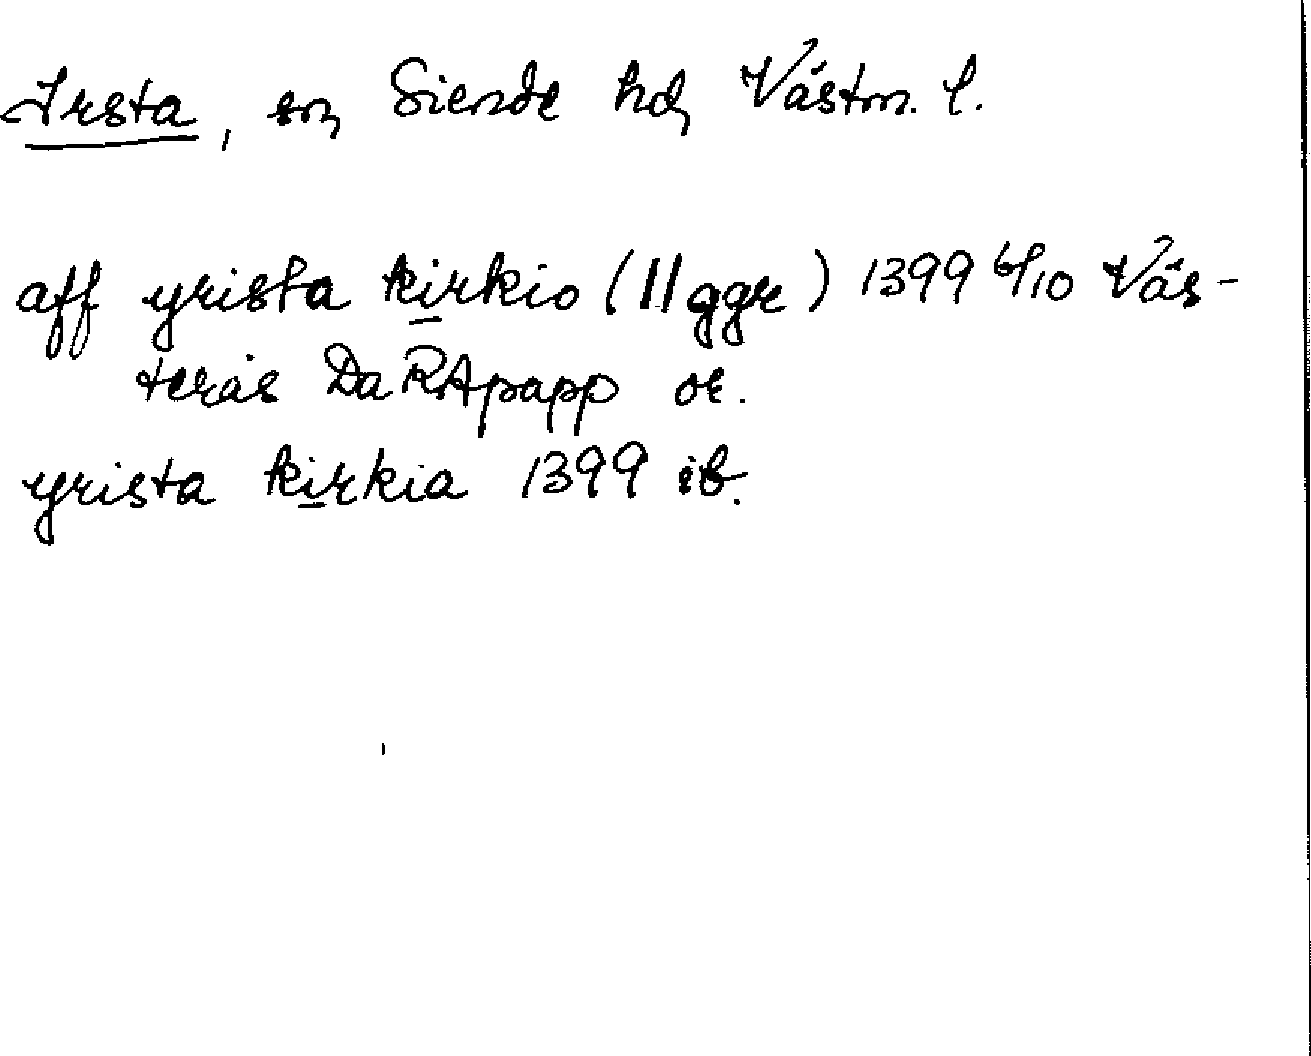 Irsta, sn, Siende hd, Västm. l.
aff yrista kirkio (II ggr) 1399 6/10 Väs-
terås Da RApapp or.
yrista kirkia 1399 ib.